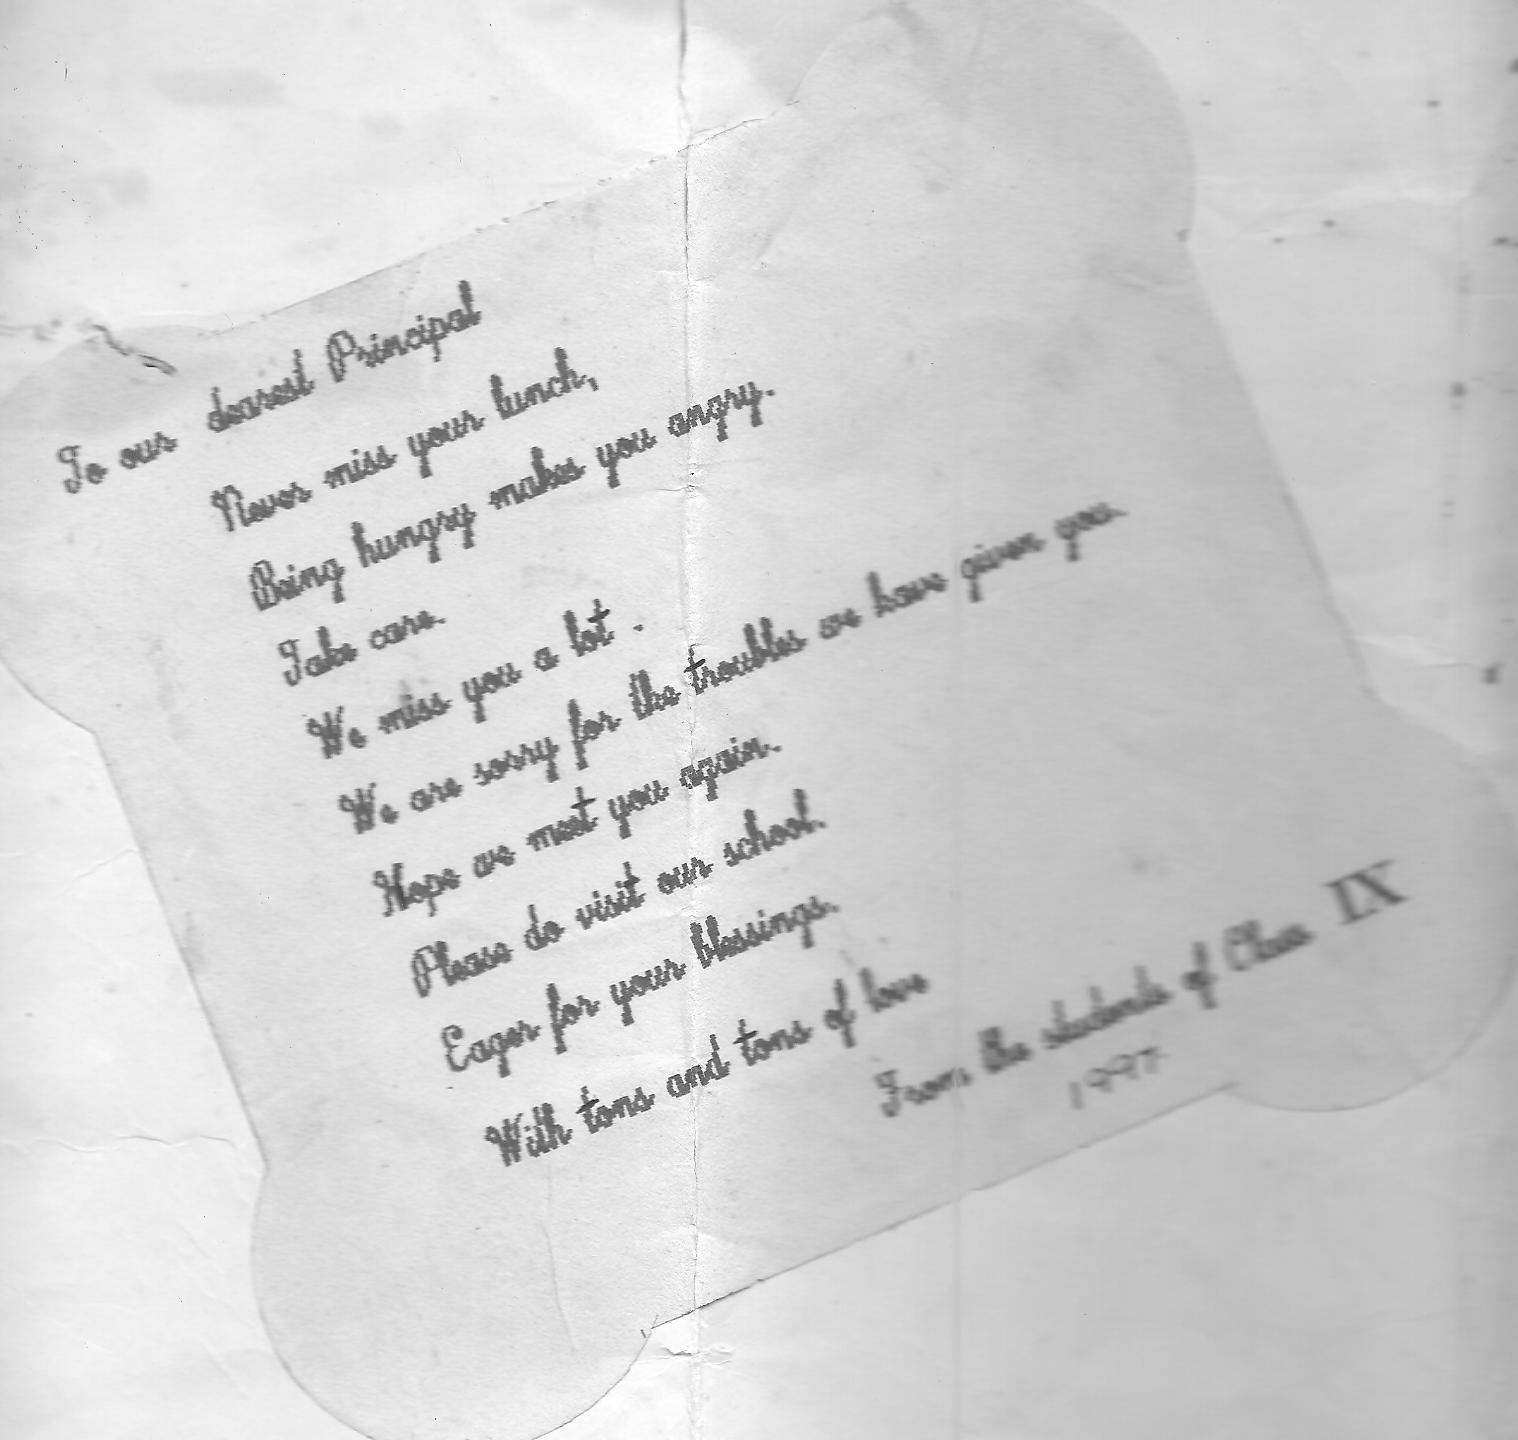 To our dearest Principal
Never miss your lunch,
Being hungry makes you angry.
Take care.
We miss you a lot .
We are sorry for the troubles we have given you.
Hope we meet you again.
Please do visit our school.
Eager for your blessings.
With tons and tons of love
From the students of Class IX
1997